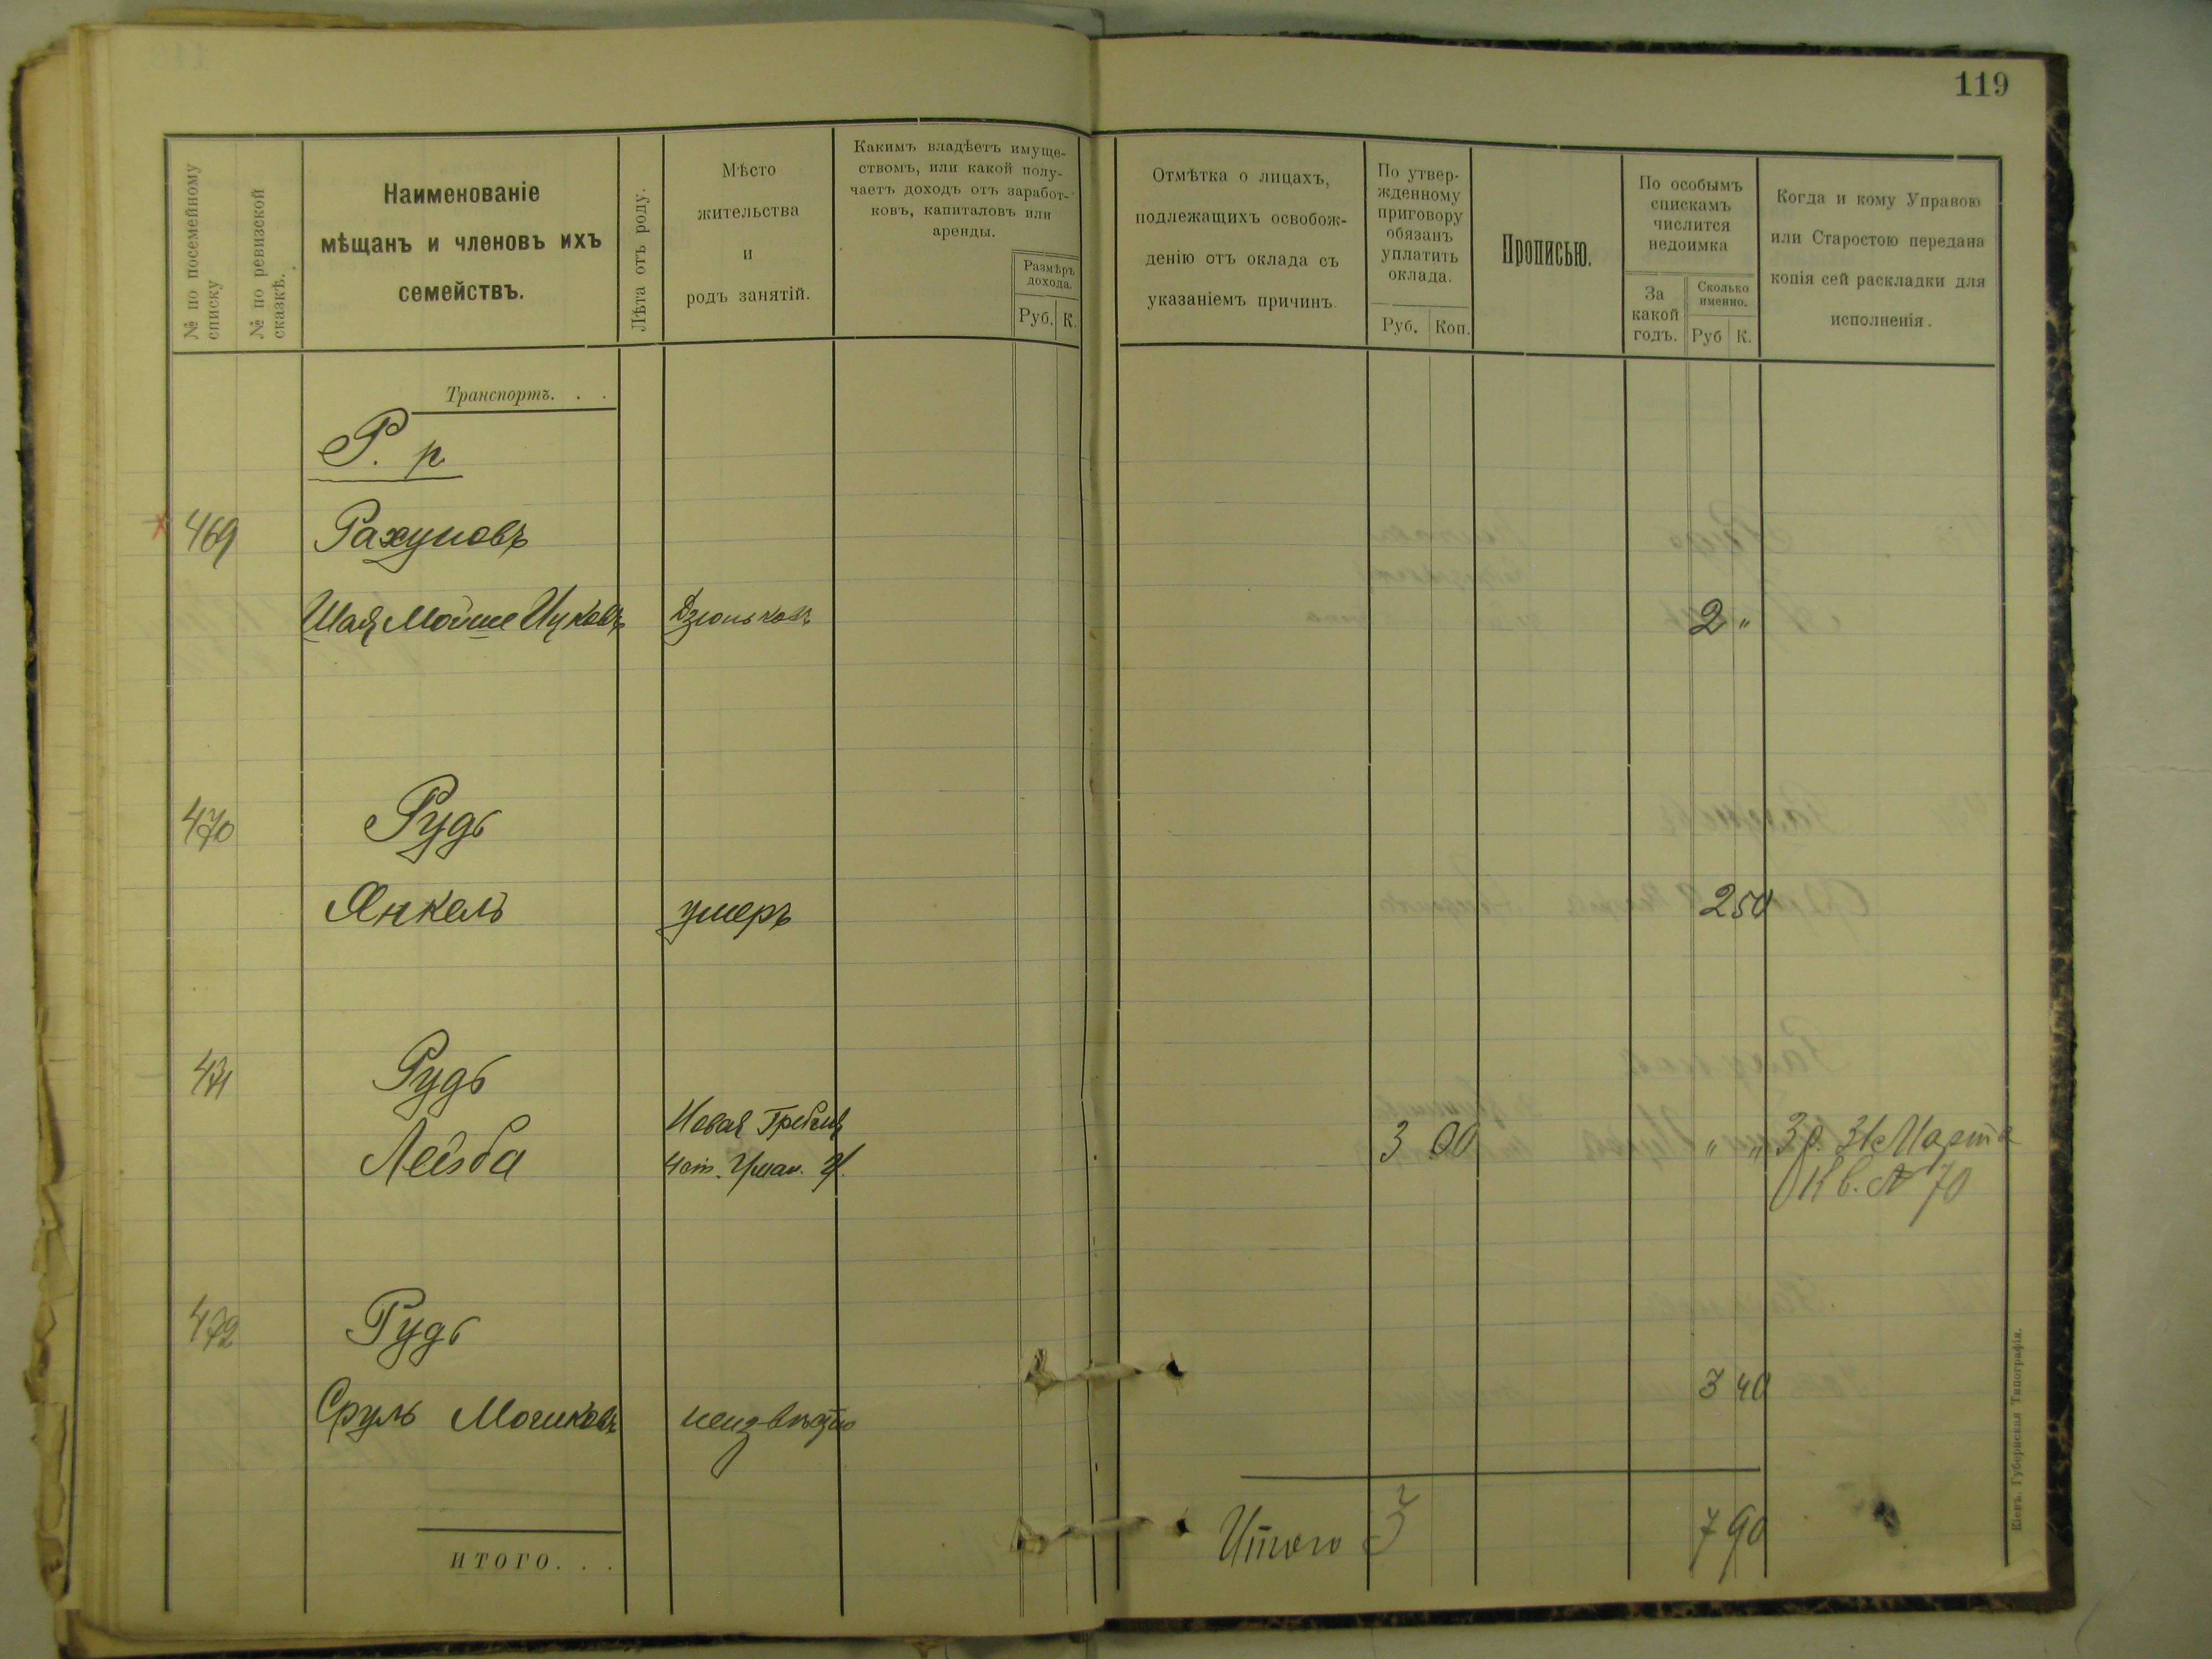 119
№ по посемейному списку
№ по ревизской сказкѣ.
Наименованіе
мѣщанъ и членовъ ихъ
семействъ.
Лѣта отъ роду.
Мѣсто
жительства
и
родъ занятій.
Какимъ владѣетъ имуще-
ствомъ, или какой полу-
чаетъ доходъ отъ заработ-
ковъ, капиталовъ или
аренды.
Размѣръ
дохода.
Руб. К.
Отмѣтка о лицахъ,
подлежащихъ освобож-
денію отъ оклада съ
указаніемъ причинъ.
По утвер-
жденному
приговору
обязанъ
уплатить
оклада.
Руб. Коп.
Прописью.
По особымъ
спискамъ
числится
недоимка
За
какой
годъ.
Сколько
именно.
Руб К.
Когда и кому Управою
или Старостою передана
копія сей раскладки для
исполненія.
Транспортъ. . .
Р. р
469 Рахуновъ
Шая Мойше Ицковъ Дзюньковъ 2 "
470 Рудь
Янкель умеръ 2 50
471 Рудь
Лейзба Новая Гребля
Уман. у. 3 00 " " 3 р. 31 Марта
Кв. № 70
472 Рудь
Сруль Мошковъ неизвѣстно 3 40
Итого 3 7 90
ИТОГО. . .
Кіевъ. Губернская Типографія.